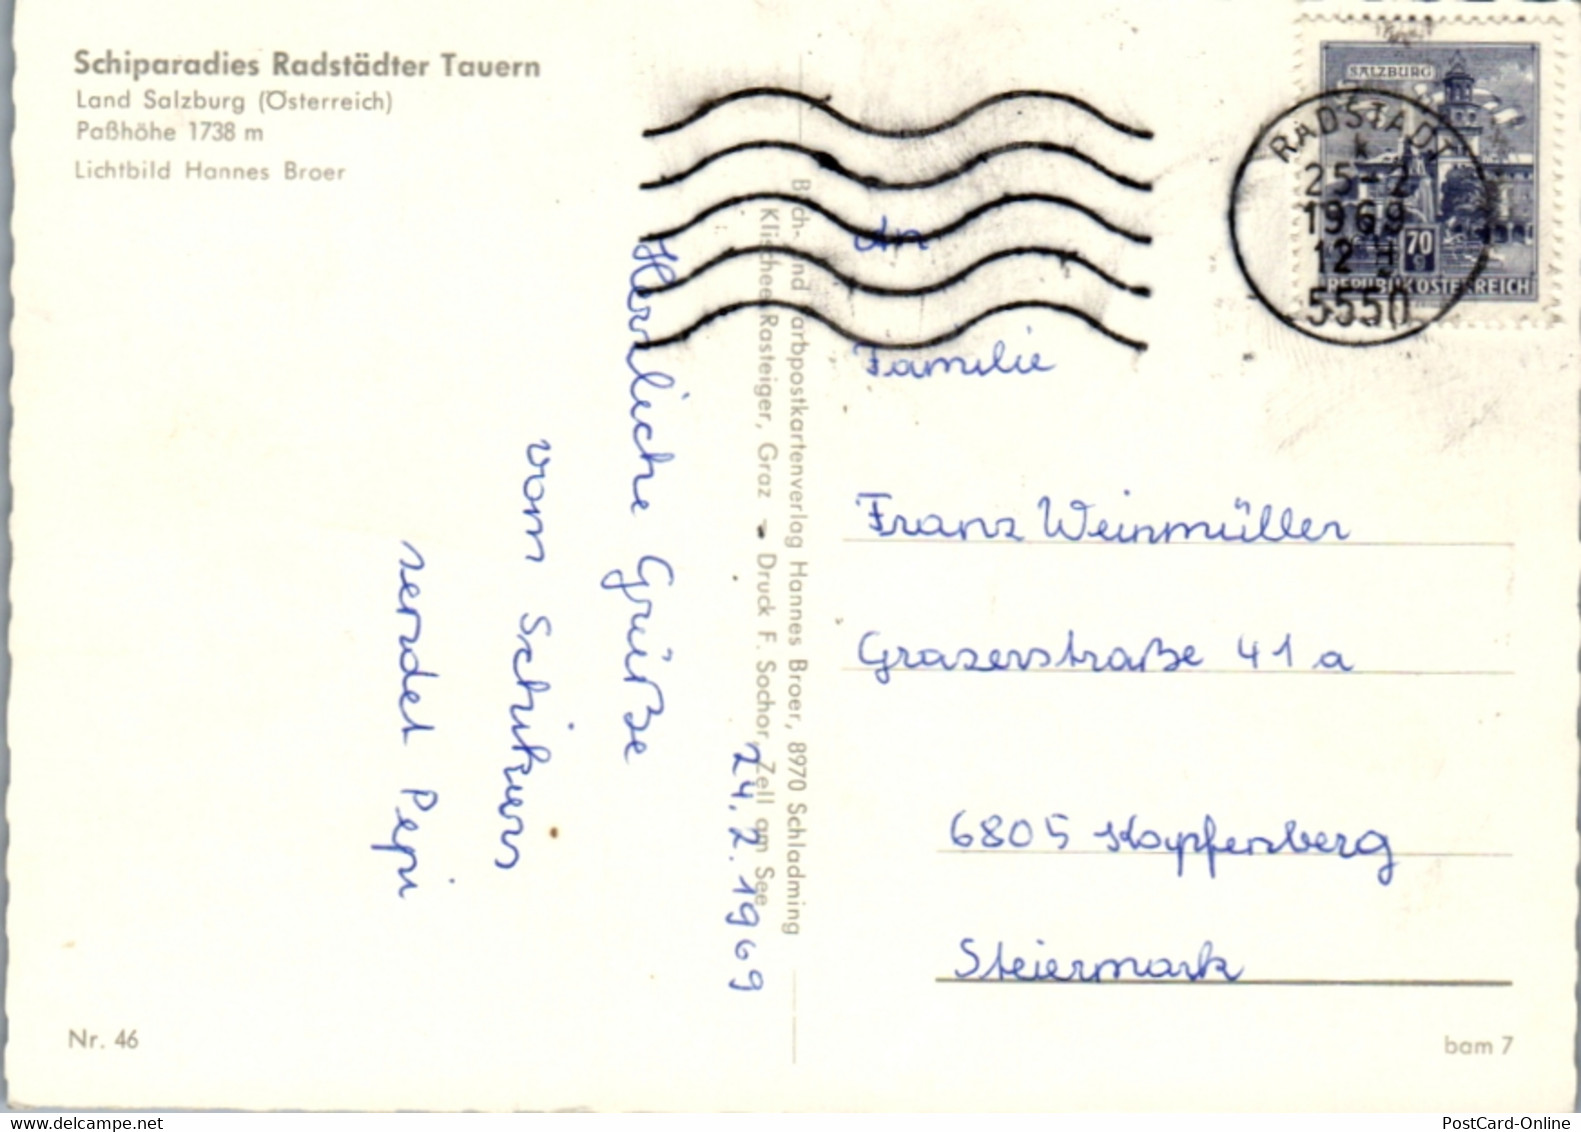 Schiparadies Radstädter Tauern
Land Salzburg (Österreich)
Paßhöhe 1738 m
Lichtbild Hannes Broer
SALZBURG
70
g
REPUBLIK ÖSTERREICH
RADSTADT
k
25-2
1969
12
5550
24.2.1969
Herzliche Grüße
vom Schikurs
sendet Pepi
Buch- und Farbpostkartenverlag Hannes Broer, 8970 Schladming
Klischee Rasteiger, Graz - Druck F. Sochor, Zell am See
An
Familie
Franz Weinmüller
Grazerstraße 41a
6805 Kapfenberg
Steiermark
Nr. 46
bam 7
www.delcampe.net
PostCard-Online